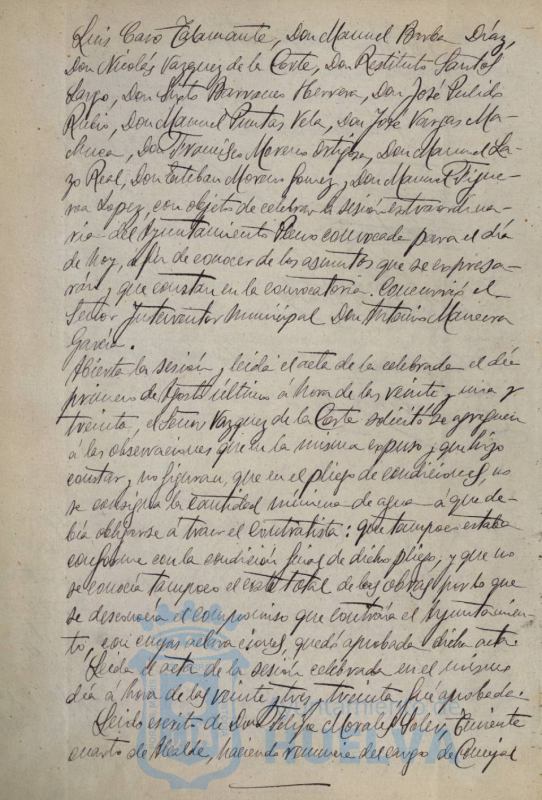 Luis Caro Talamante, Don Manuel Barba Díaz,
Don Nicolás Vazquez de la Corte, Don Restituto Santos
Largo, Don Sixto Barruecos Herrera, Don José Pulido
Rubio, Don Manuel Puntas Vela, Don José Vargas Ma-
chuca, Don Francisco Moreno Ortega, Don Manuel La-
zo Real, Don Esteban Moreno Gomez y Don Manuel Figue-
roa Lopez, con objeto de celebrar la sesión extraordina-
ria del Ayuntamiento Pleno convocada para el día
de hoy, a fin de conocer de los asuntos que se expresa-
rán y que constan en la convocatoria. Concurrió el
Señor Interventor municipal Don Antonio
García.
Abierta la sesión y leida el acta de la celebrada el dia
primero de Agosto último á hora de las veinte y una y
treinta, el Señor Vazquez de la Corte solicitó se agreguen
á las observaciones que en la misma expuso y que hizo
constar, y no figuran, que en el pliego de condiciones, no
se consigna la cantidad minima de agua á que de-
bía obligarse á traer el contratista: que tampoco estaba
conforme con la condición final de dicho pliego, y que no
se conocía tampoco el coste total de las obras por lo que
se desconocia el compromiso que contraría el Ayuntamien-
to, con cuyas aclaraciones, quedó aprobada dicha acta.
Leida el acta de la sesión celebrada en el mismo
día a hora de las veinte y tres y treinta, fué aprobada.
Leido escrito de Don Felipe Morales Soler, Teniente
cuarto de Alcalde, haciendo renuncia del cargo de Concejal